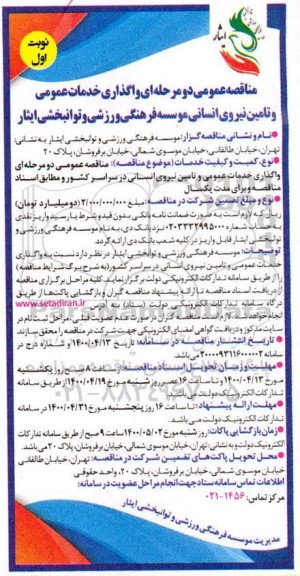 نوبت
اول
ایثار
مناقصه عمومی دو مرحله ای واگذاری خدمات عمومی
و تامین نیروی انسانی موسسه فرهنگی ورزشی و توانبخشی ایثار
نام و نشانی مناقصه گزار: موسسه فرهنگی ورزشی و توانبخشی ایثار به نشانی:
تهران، خیابان طالقانی، خیابان موسوی شمالی، خیابان برفروشان، پلاک ۲۰
نوع، کمیت و کیفیت خدمات (موضوع مناقصه): مناقصه عمومی دو مرحله ای
واگذاری خدمات عمومی و تامین نیروی انسانی در سراسر کشور و مطابق اسناد
مناقصه و برای مدت یکسال
نوع و مبلغ تضمین شرکت در مناقصه: مبلغ ۲/۰۰۰/۰۰۰/۰۰۰ (دو میلیارد تومان)
ریال که لازم است به صورت ضمانت نامه بانکی بدون قید و شرط یا رسید واریز نقدی
شماره سپرده ۲۰۳۳۳۲۹۹۵۰۰۰ نزد بانک دی به نام موسسه فرهنگی ورزشی و
توانبخشی ایثار قابل واریز در کلیه شعب بانک دی ارائه گردد.
توضیحات: موسسه فرهنگی ورزشی و توانبخشی ایثار در نظر دارد نسبت به واگذاری
خدمات عمومی و تامین نیروی انسانی در سراسر کشور (به شرح برگ شرایط مناقصه)
را از طریق سامانه تدارکات الکترونیکی دولت برگزار نماید. کلیه مراحل برگزاری مناقصه
از دریافت اسناد مناقصه تا ارائه پیشنهاد مناقصه گران و بازگشایی پاکت ها از طریق
درگاه سامانه تدارکات الکترونیکی دولت (ستاد) به آدرس www.setadiran.ir
انجام خواهد شد.
سایت مذکور و دریافت گواهی امضای الکترونیکی جهت شرکت در مناقصه را محقق سازند.
تاریخ انتشار مناقصه در سامانه: تاریخ ۱۴۰۰/۰۴/۱۳ و شماره درج در
سامانه ۲۰۰۰۰۹۳۱۱۶۰۰۰۰۰۲ می باشد
مهلت و زمان تحویل اسناد مناقصه: از ساعت ۸ صبح روز یکشنبه
مورخ ۱۴۰۰/۰۴/۱۳ و تا ساعت ۱۶ عصر روز شنبه مورخ ۱۴۰۰/۰۴/۱۹ از طریق سامانه
تدارکات الکترونیک دولت
مهلت ارائه پیشنهاد: تا ساعت ۱۶ روز پنجشنبه مورخ ۱۴۰۰/۰۴/۳۱ از طریق سامانه
تدارکات الکترونیک دولت می باشد
زمان بازگشایی پاکات: روز شنبه مورخ ۱۴۰۰/۰۵/۰۲ ساعت ۹ صبح از طریق سامانه تدارکات
الکترونیک دولت و به نشانی: تهران، خیابان موسوی شمالی، خیابان برفروشان، پلاک ۲۰ می باشد.
محل تحویل پاکت های تضمین شرکت در مناقصه: تهران، خیابان طالقانی
خیابان موسوی شمالی، خیابان برفروشان، پلاک ۲۰، واحد حقوقی
اطلاعات تماس سامانه ستاد جهت انجام مراحل عضویت در سامانه:
مرکز تماس: ۱۴۵۶-۰۲۱
مدیریت موسسه فرهنگی ورزشی و توانبخشی ایثار